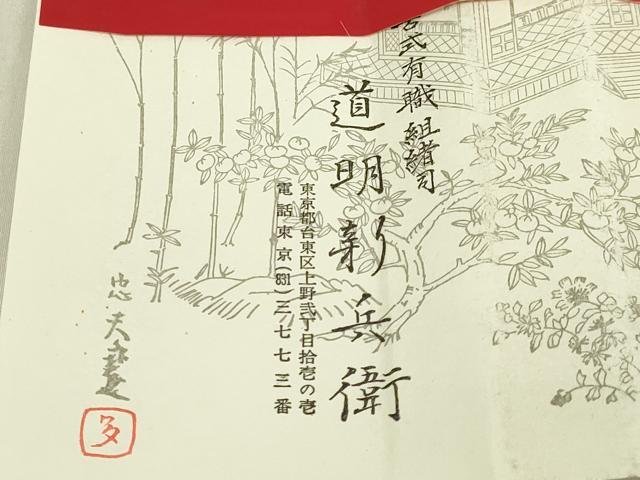 式有職組緒司
道明新兵衛
東京都台東区上野弐丁目拾壱の壱
電話東京(831)三七七三番
忠夫画